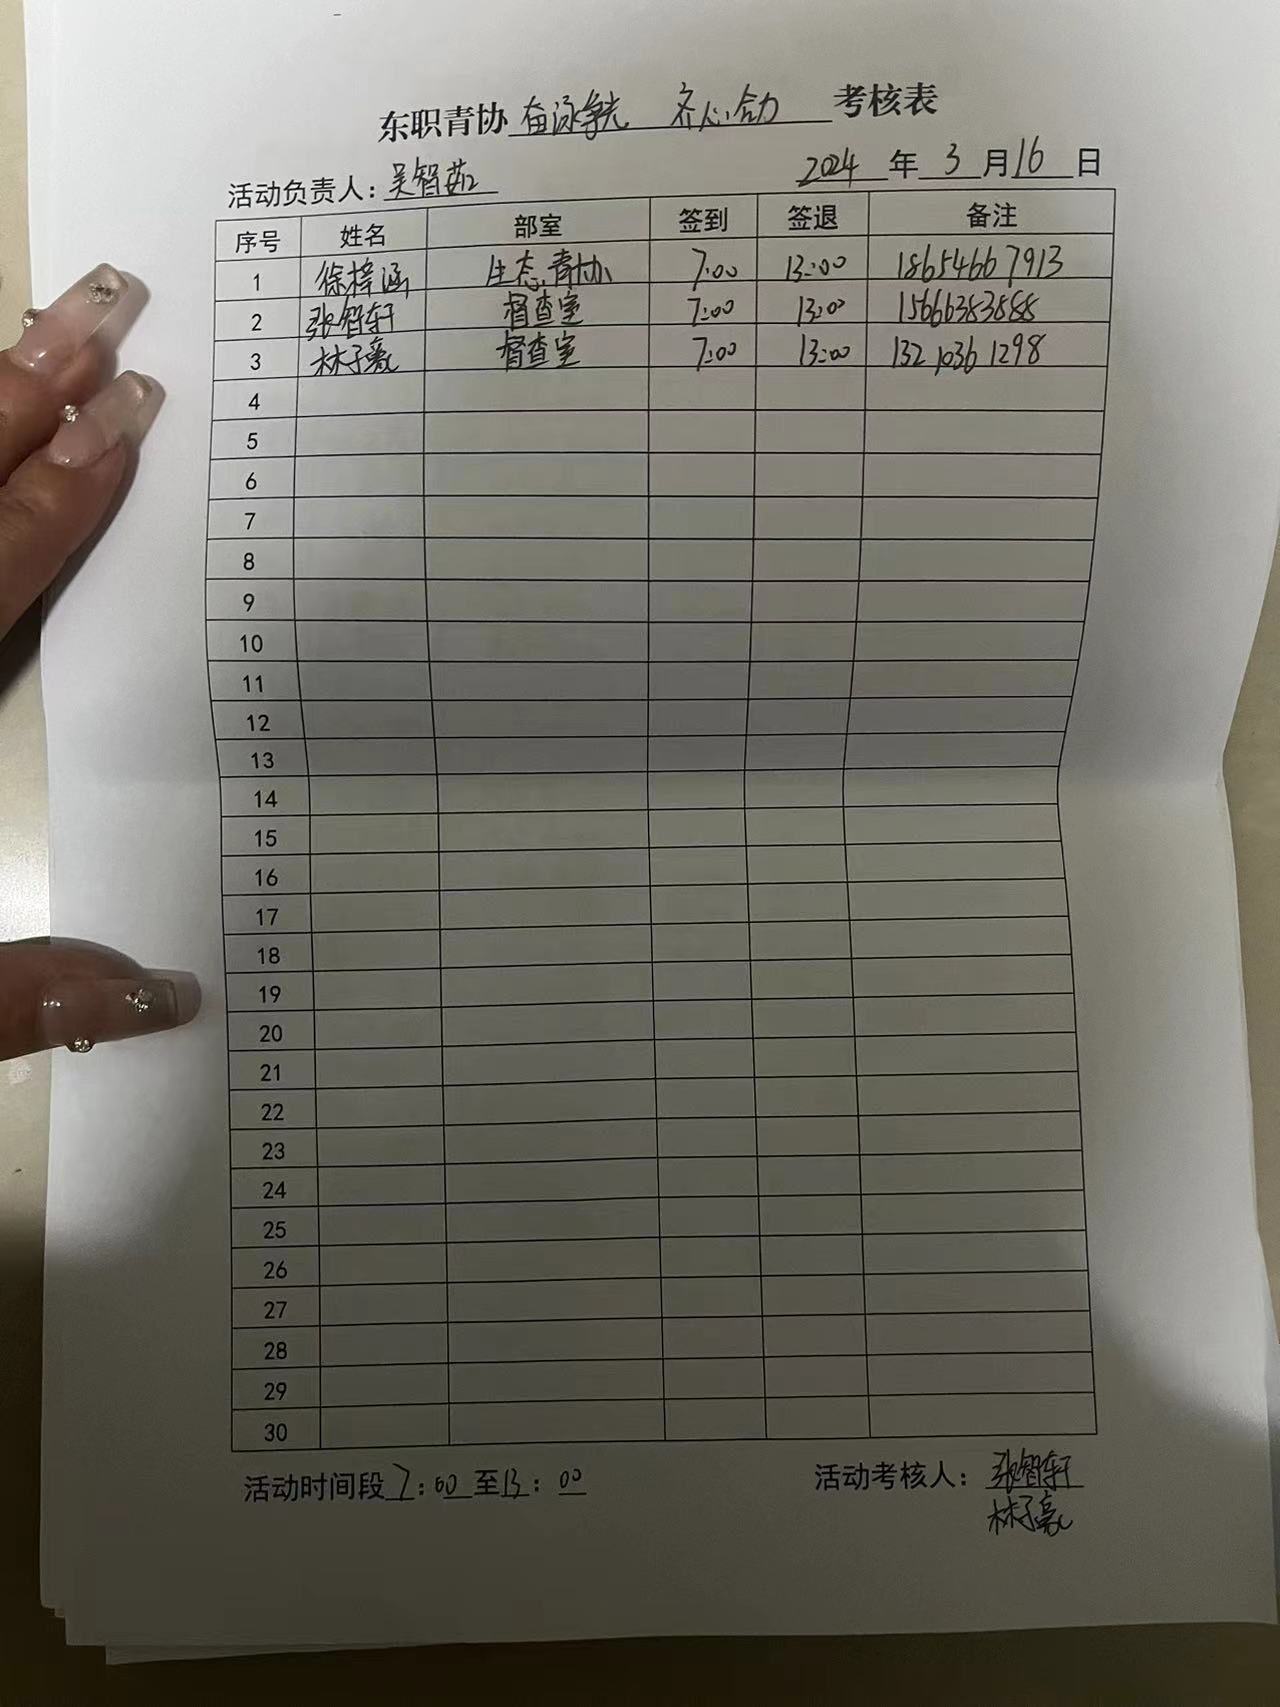 东职青协 奋泳争先 齐心合力 考核表
活动负责人：吴智茹 2024 年 3 月 16 日
序号 姓名 部室 签到 签退 备注
1 徐梓涵 生态青协 7:00 13:00 18654667913
2 张智轩 督查室 7:00 13:00 15666383888
3 林子豪 督查室 7:00 13:00 13210361298
4
5
6
7
8
9
10
11
12
13
14
15
16
17
18
19
20
21
22
23
24
25
26
27
28
29
30
活动时间段 7:00 至 13:00 活动考核人：张智轩
林子豪